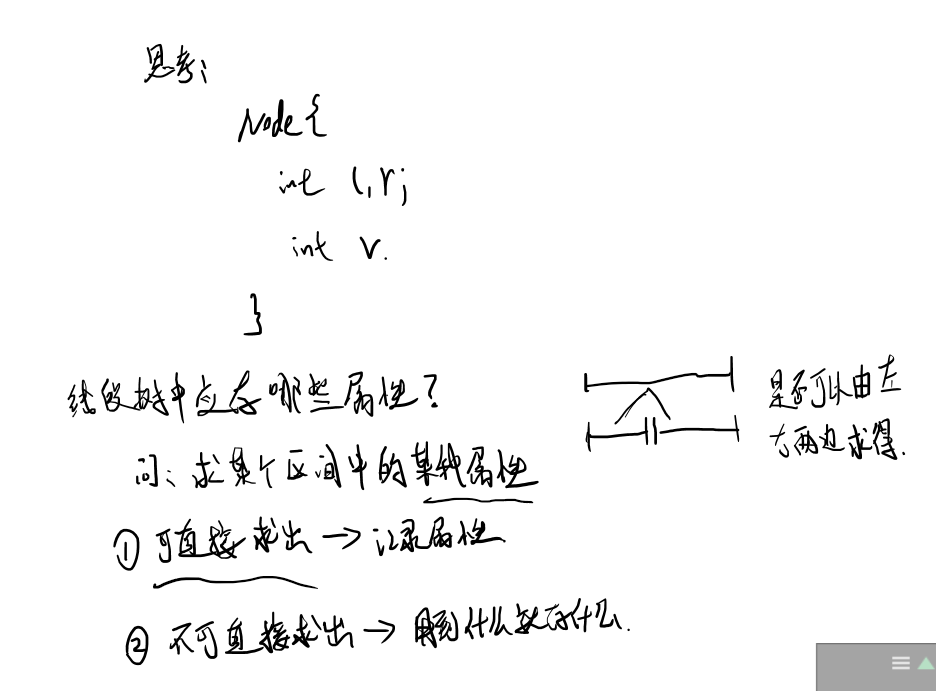 思考：
Node{
int l,r;
int v.
}
线段树中应存哪些属性？
问：求某个区间中的某种属性
① 可直接求出 → 记录属性
② 不可直接求出 → 用到什么就存什么.
是否可以由左
右两边求得.